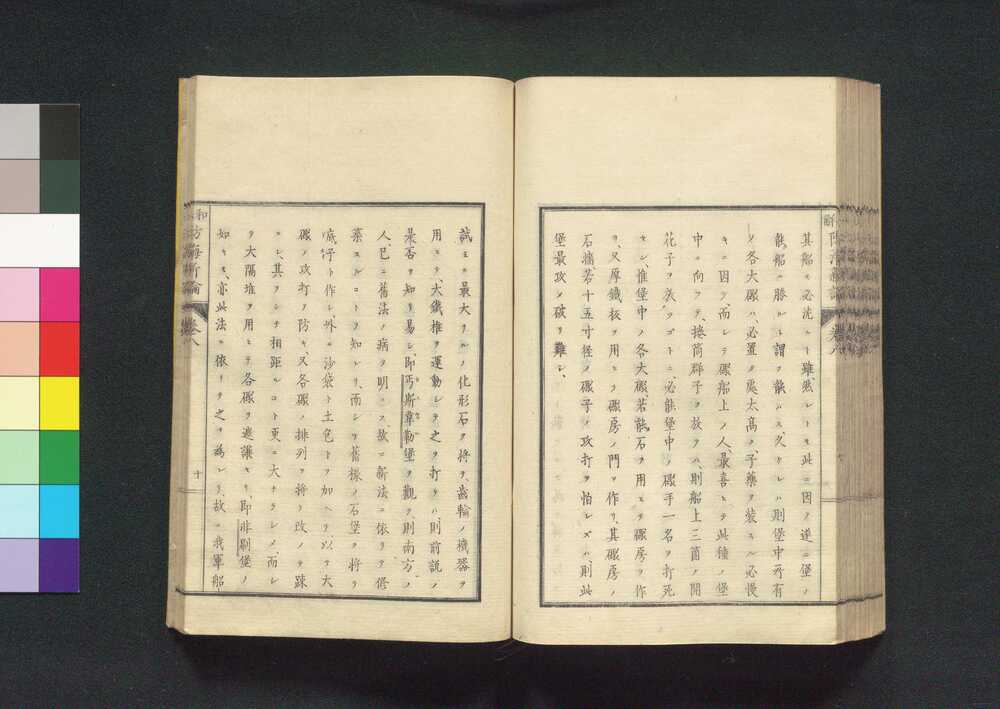 其船ヲ必洗ルト雖、然レトモ此ニ因ノ遂ニ堡ノ
能船ニ勝ルト謂フ能ハス、久ケレハ則堡中所有
ノ各大礮ハ必置ク處太高ク、子藥ヲ裝スル必慢
キニ因ヲ、而シテ礮船上ノ人、最喜テ此種ノ堡
中ニ向フヲ、捲筒群子ヲ放ツハ、則船上三箇ノ開
花子ヲ放ツコトニ、必能堡中ノ礮手一名ヲ打死
セン、惟堡中ノ各大礮、若能石ヲ用ヒテ礮房ヲ作
リ、又厚鐵板ヲ用ヒテ礮房ノ門ヲ作リ、其礮房ノ
石牆若十五寸徑ノ礮子ノ攻打ヲ怕レズハ、則此
堡最攻メ破リ難シ、
試ミニ最大ナルノ化形石ヲ將テ、齒輪ノ機器ヲ
用ヒテ、大鐵椎ヲ運動シテ之ヲ打タハ、則前説ノ
是否ヲ知リ易シ、即丏斯韋勒堡ヲ觀テ、則南方ノ
人、已ニ舊法ノ病ヲ明ニス、故ニ新法ニ依リテ修
築スルコトヲ知レリ、而シテ舊樣ノ石堡ヲ將テ
底ニ作シ、外ニ沙袋ト土色トヲ加ヘテ、以テ大
礮ノ攻打ヲ防キ、又各礮ノ排列ヲ將テ改メテ疎
ニシ、其ヲシテ相距ルコト更ニ大ナラシメ、而シ
テ大隔堆ヲ用ヒテ各礮ヲ遮護セリ、即非剔堡ノ
如キモ、亦此法ニ依リテ之ヲ爲レリ、故ニ我軍船
防海新論
卷八
十